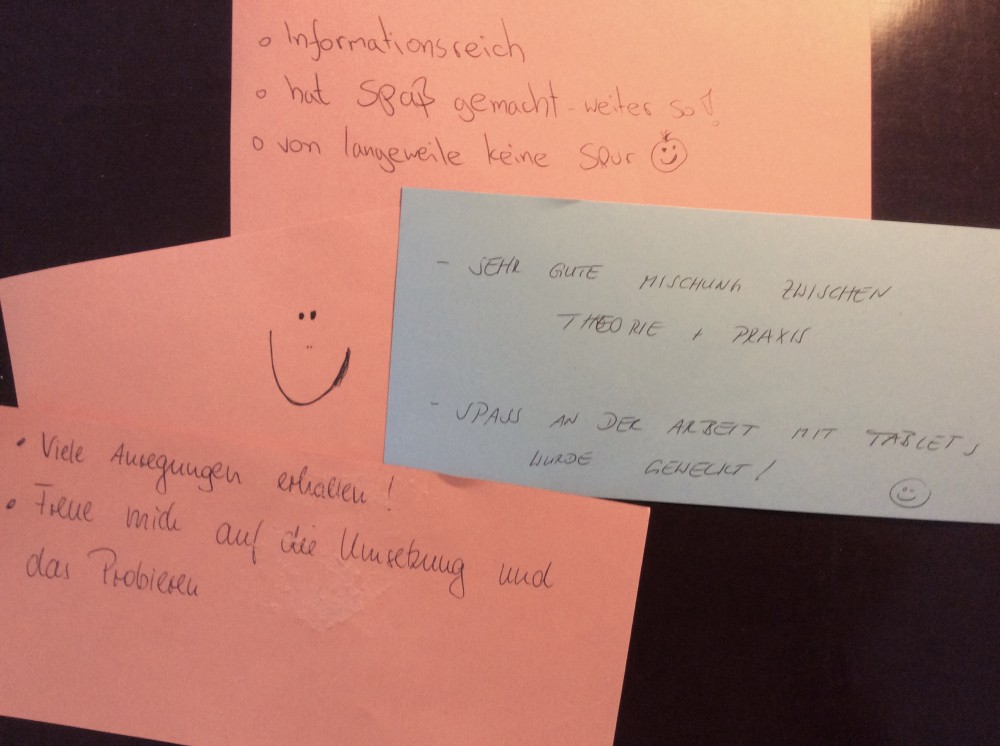 • Informationsreich
• hat Spaß gemacht - weiter so!
• von langeweile keine Spur
- SEHR GUTE MISCHUNG ZWISCHEN
THEORIE + PRAXIS
- SPASS AN DER ARBEIT MIT TABLETS
WURDE GEWECKT!
• Viele Anregungen erhalten!
• Freue mich auf die Umsetzung und
das Probieren